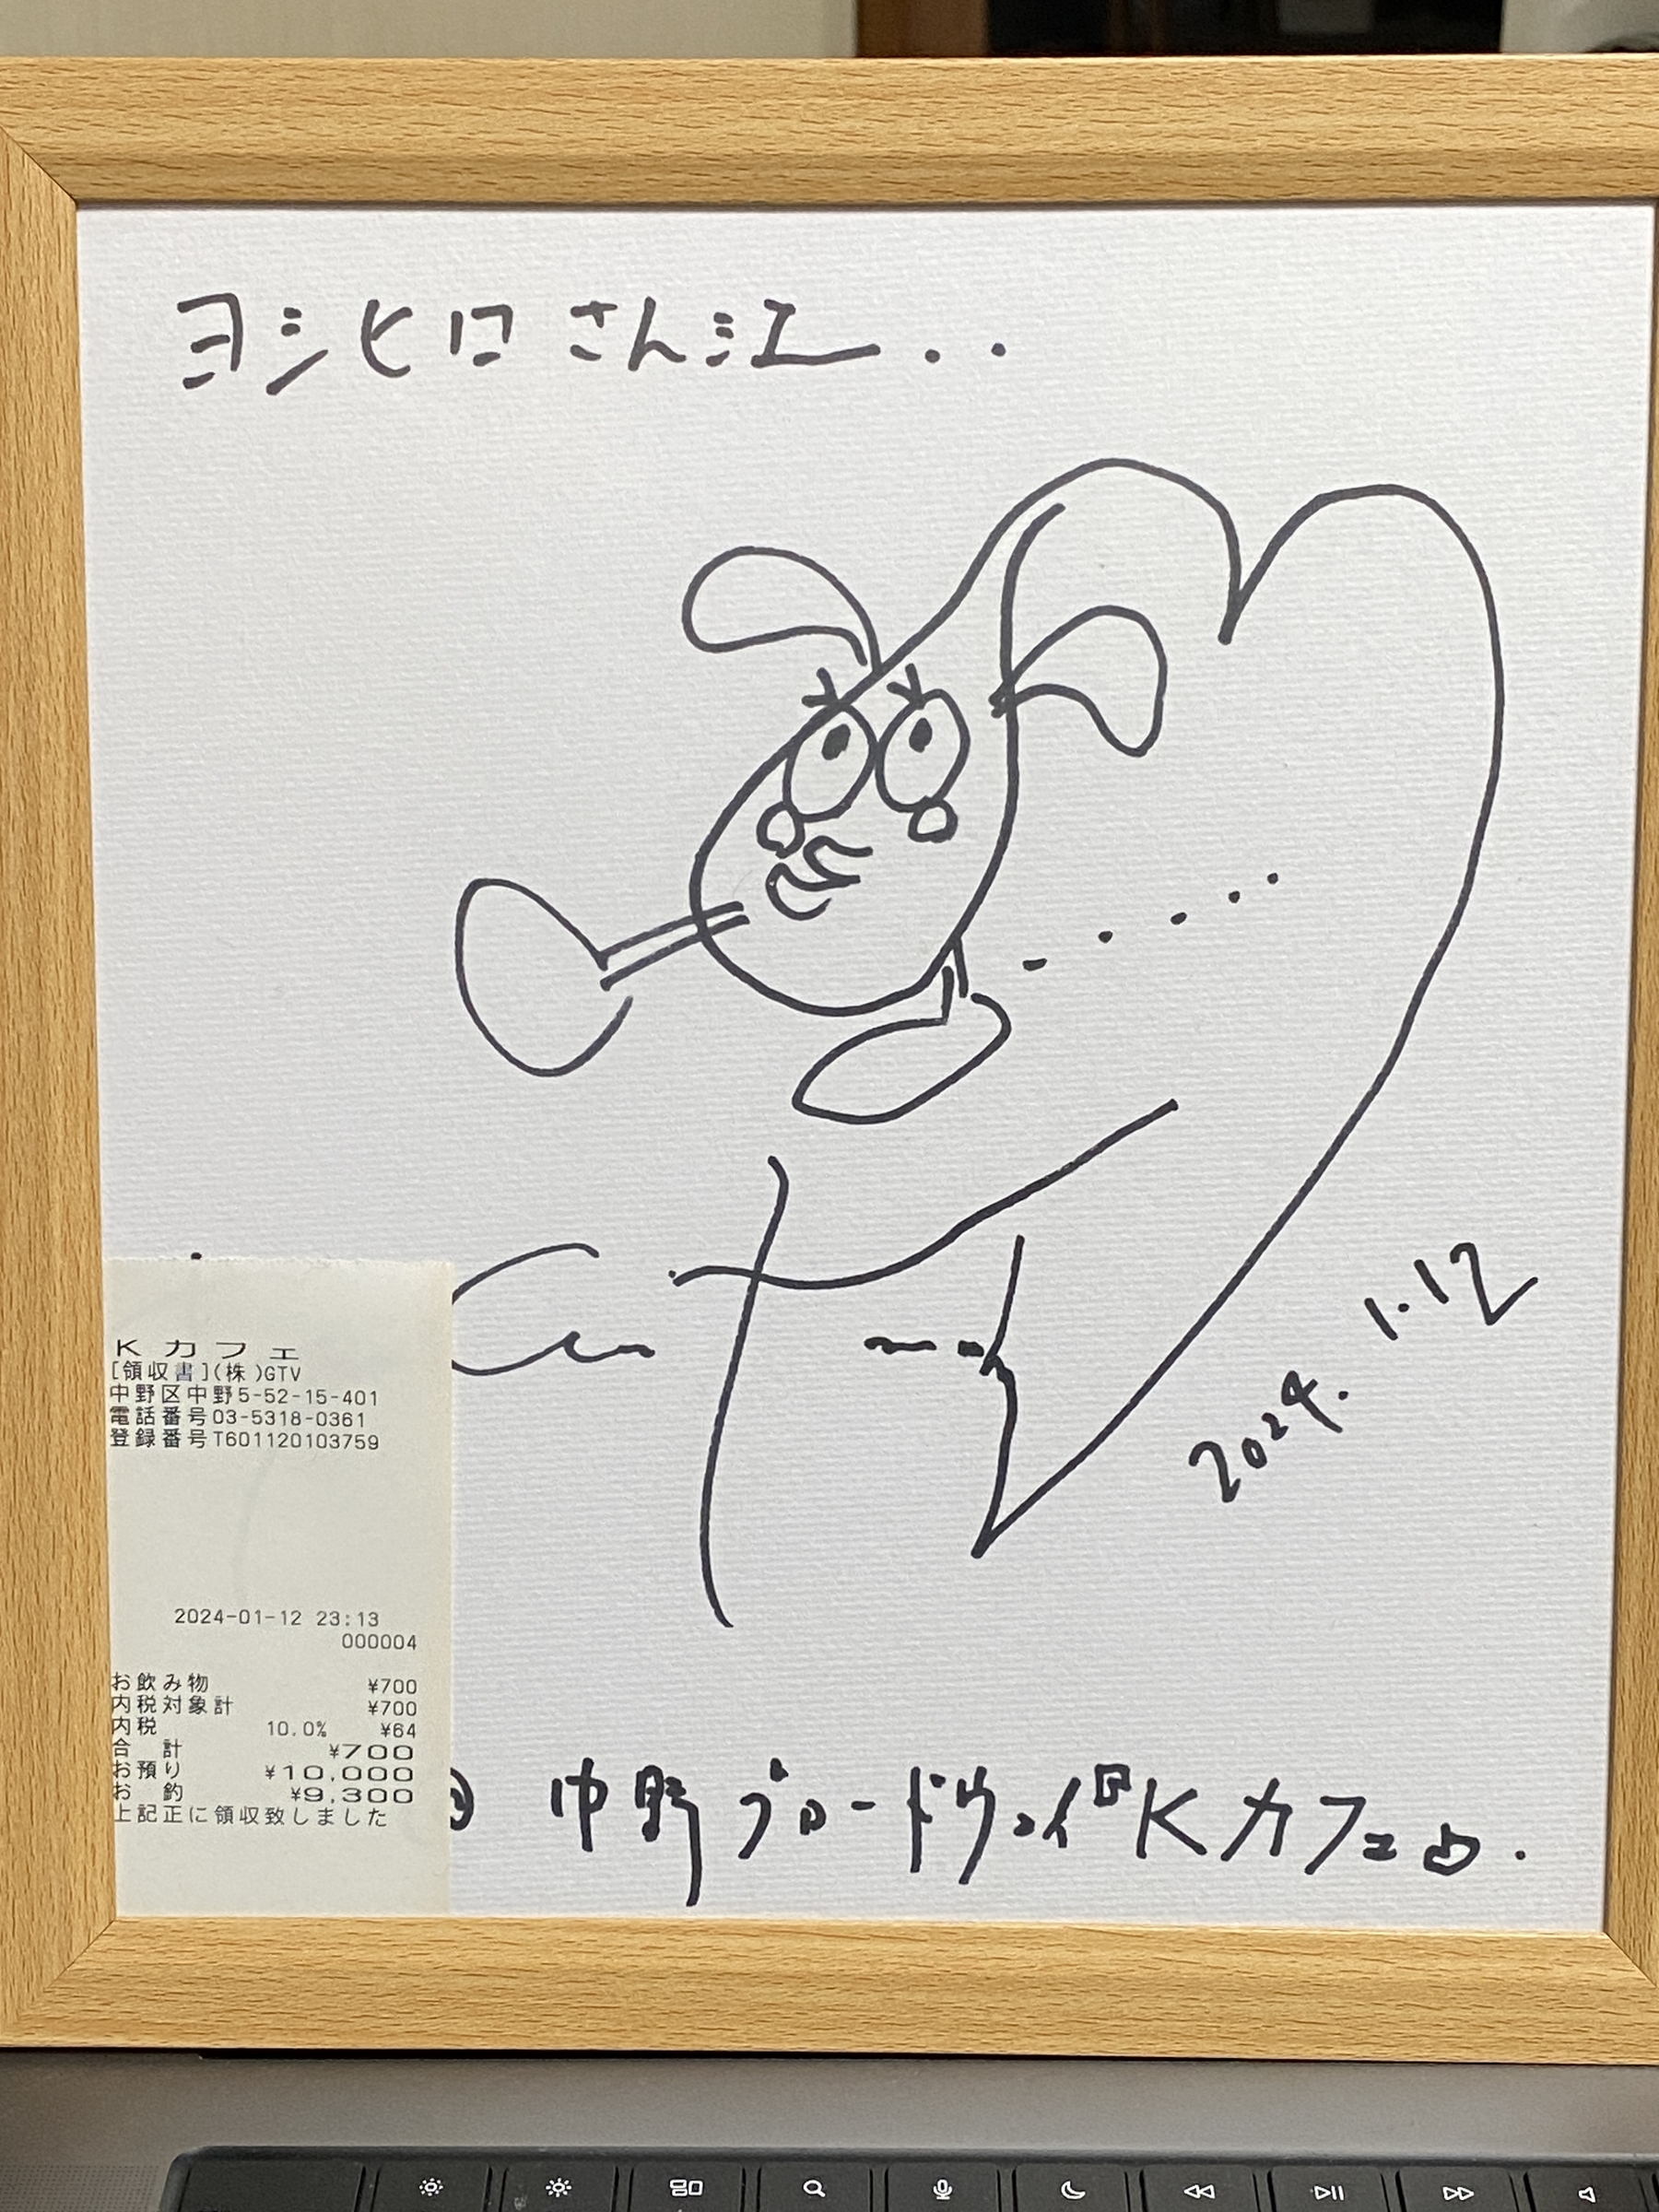 ヨシヒロさん江...
2024.1.12
Kカフェ
[領収書](株)GTV
中野区中野5-52-15-401
電話番号03-5318-0361
登録番号T601120103759
2024-01-12 23:13
000004
お飲み物 ¥700
内税対象計 ¥700
内税 10.0% ¥64
合 計 ¥700
お預り ¥10,000
お 釣 ¥9,300
上記正に領収致しました
中野ブロードウェイ Kカフェ